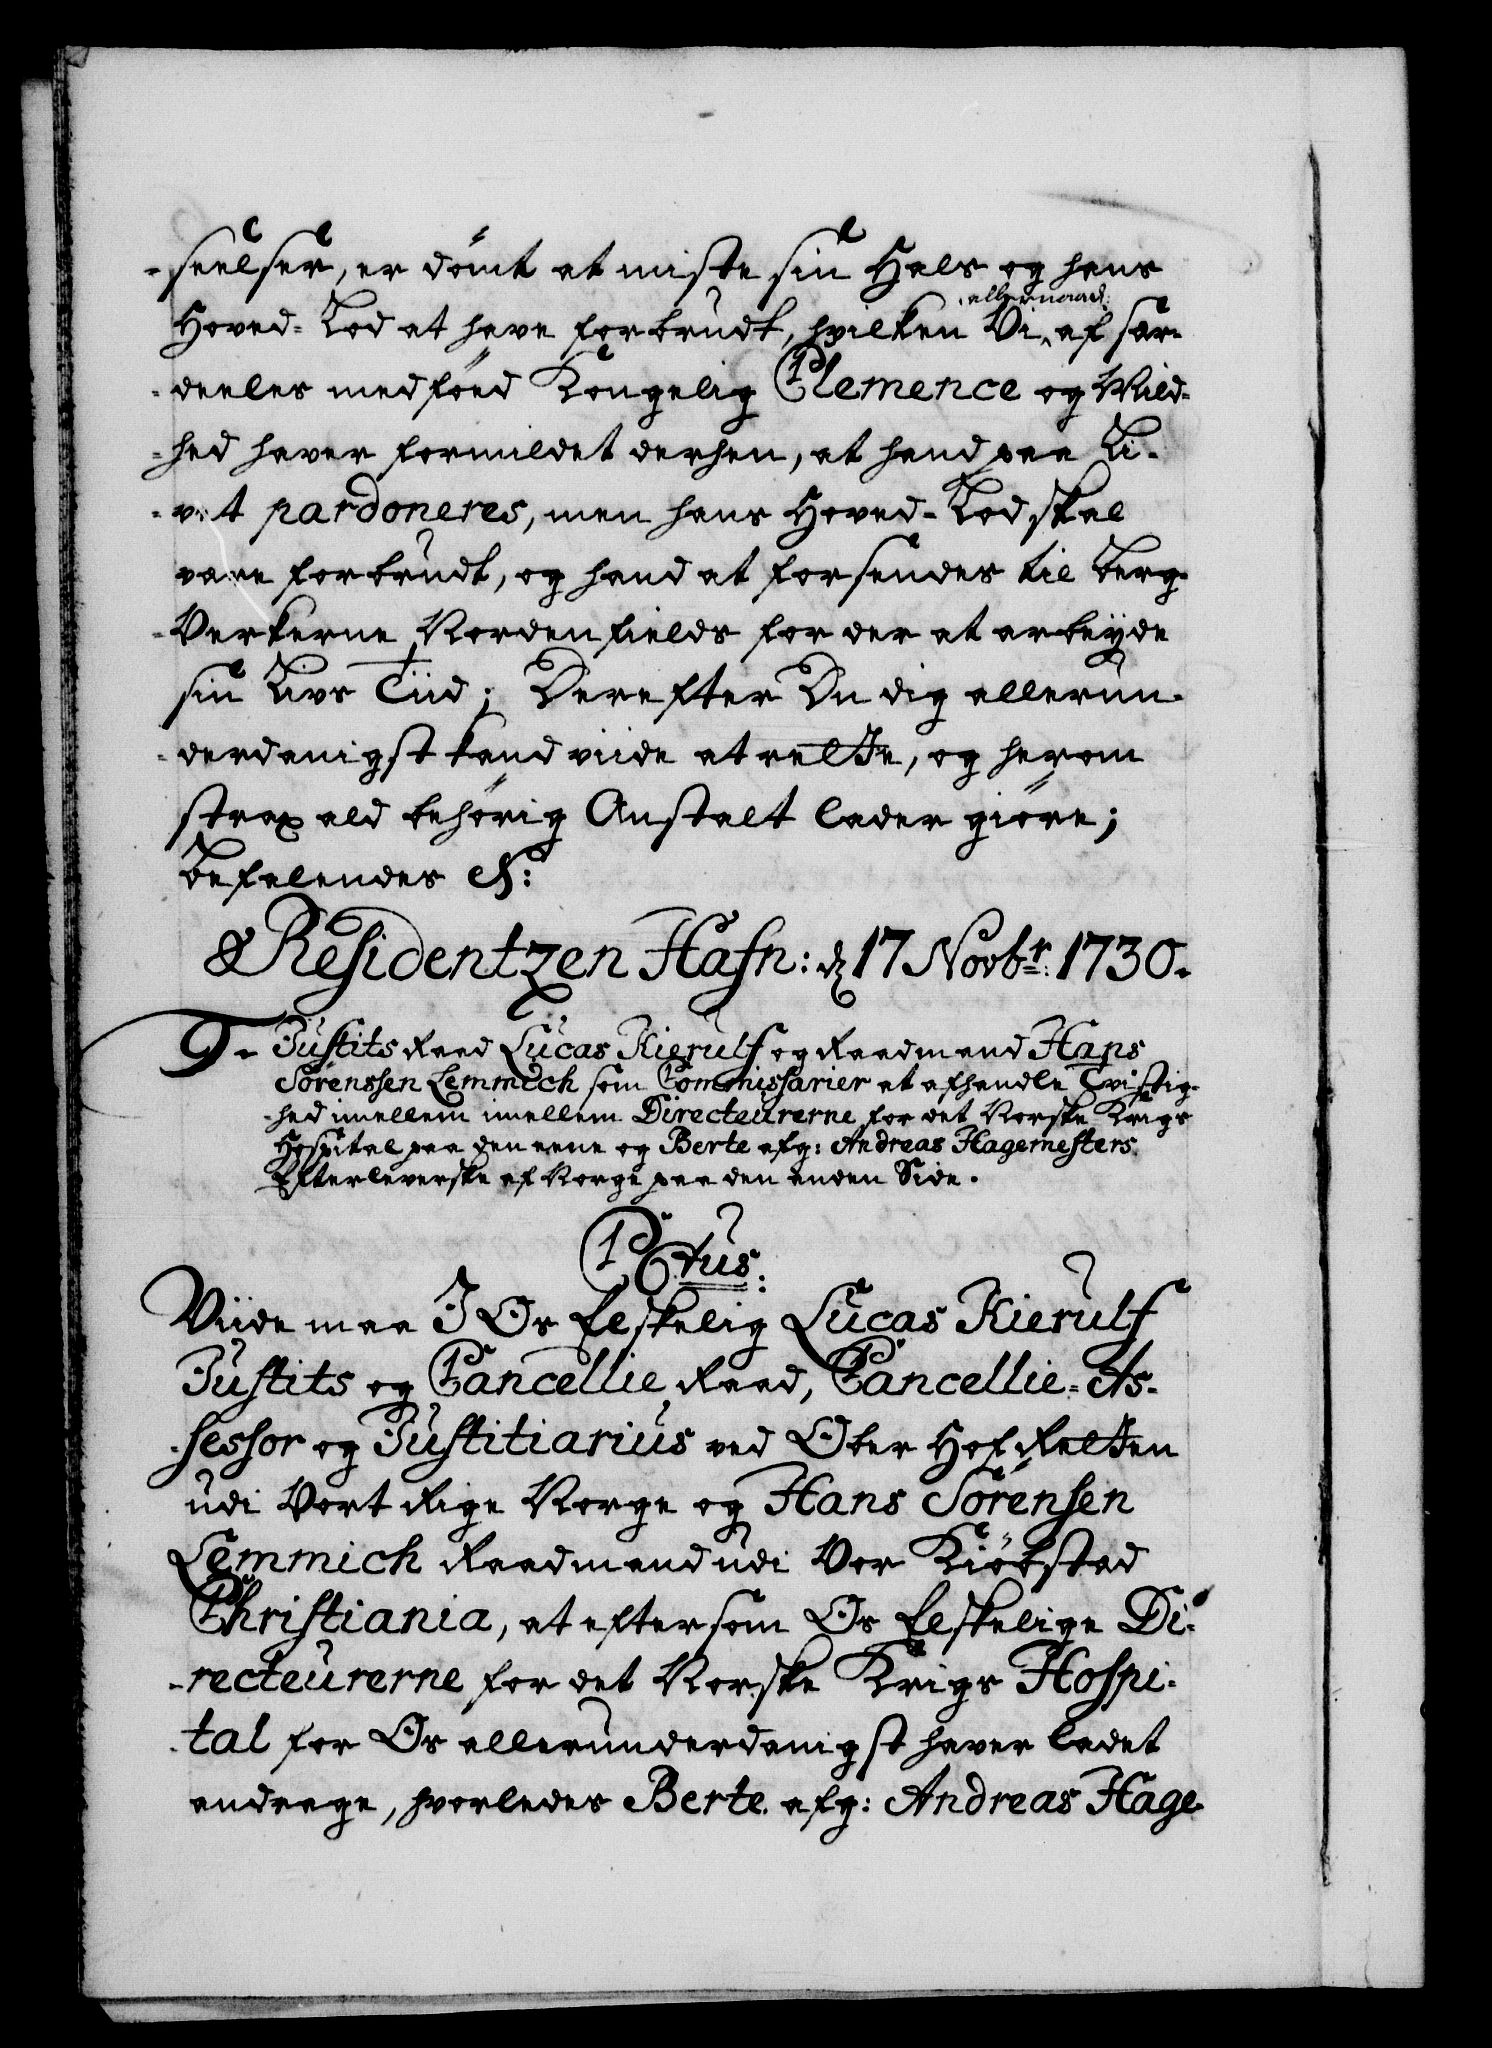 -seelser, er dömt at miste sin Hals og hans
Hoved-Lod at have forbrudt, hvilken Vi allernaad: af sær-
-deeles medföed Kongelig Clemence og Mild-
-hed haver formildet derhen, at hand paa Li-
-vet pardoneres, men hans Hoved-Lod skal
være forbrudt, og hand at forsendes til Berg-
-Verkerne Nordenfields for der at arbeyde
sin Livs Tiid; Derefter Du dig allerun-
-derdanigst kand viide at rette, og herom
strax ald behörig Anstalt lader giöre;
Befalendes etc:
& Residentzen Hafn: d 17 Novbr: 1730.
9. Justits Raad Lucas Kierulf og Raadmand Hans
Sörenssen Lemmich som Commissarier at afhandle Tvistig-
-hed imellem imellem Directeurerne for det Norske Krigs
Hospital paa den eene og Berte afg: Andreas Hagemesters
Efterleverske af Norge paa den anden Side.
C6tus:
Viide maa I Os Elskelig Lucas Kierulf
Justits og Cancellie Raad, Cancellie-As-
-sessor og Justitiarius ved Ober Hof Retten
udi Vort Rige Norge og Hans Sörensen
Lemmich Raadmand udi Vor Kiöbstad
Christiania, at eftersom Os Elskelige Di-
-recteurerne for det Norske Krigs Hospi-
-tal for Os allerunderdanigst haver ladet
andrage, hvorledes Berte afg: Andreas Hage-